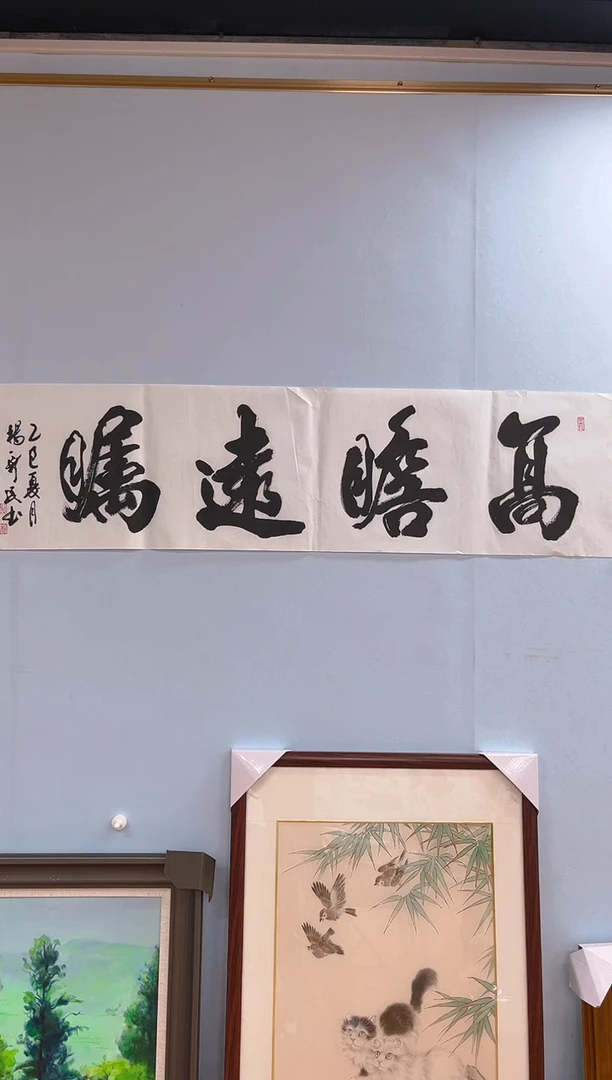 高瞻遠矚
乙巳夏月
楊新民书